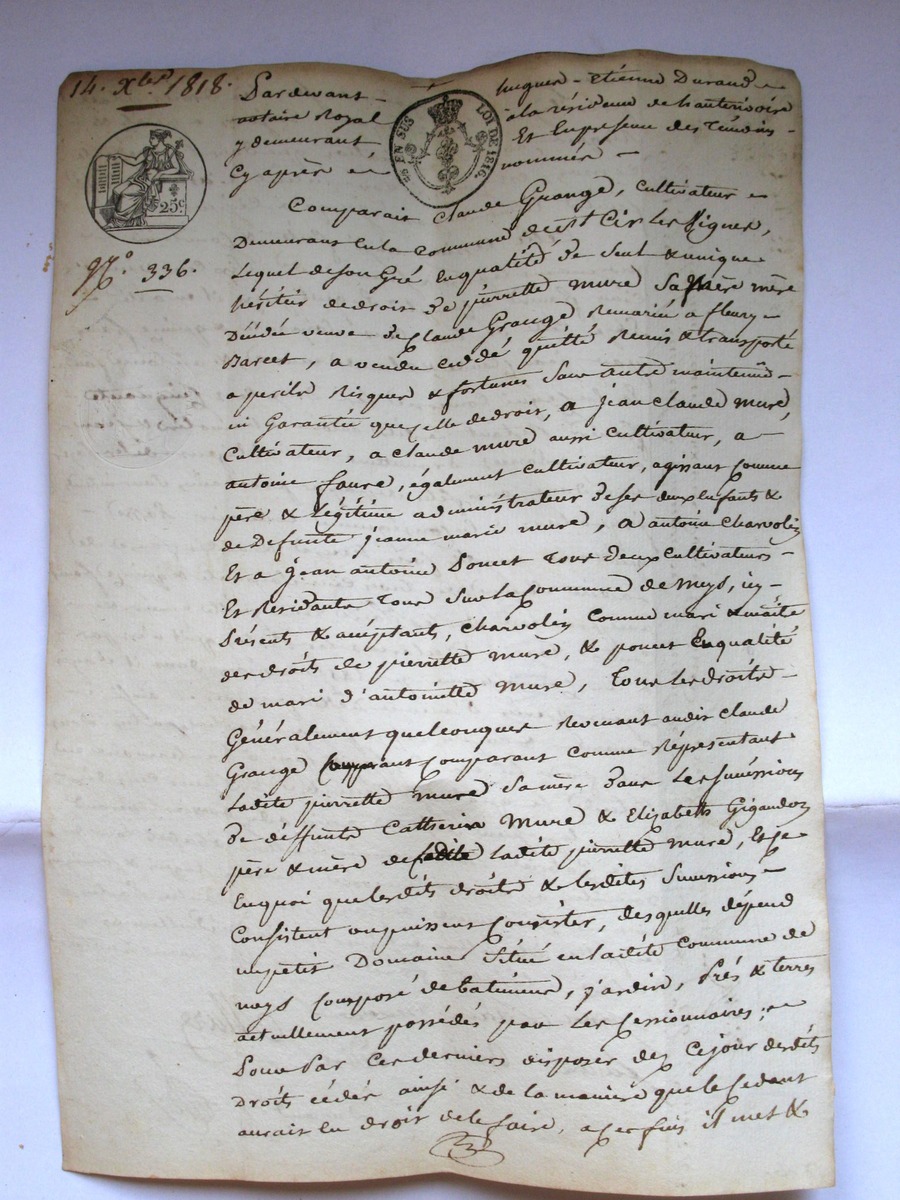 14. Xbre 1818.
Pardevant hugues-étienne Durand
notaire Royal à la résidence de hauterivoire
y demeurant Et En présence des Témoins
Cy après nommés
EN SUS LOI DE 1816.
25c
N.° 336.
Comparait Claude Grange, Cultivateur
Demeurant En la Commune de St Cir les Vignes,
Lequel de son Gré En qualité de Seul & unique
héritier de droit de pierrette mure Sa mère
Décédée veuve de Claude Grange Remarié a fleury
Darcet, a vendu cédé quitté Remis & transporté
a perils Risques & fortunes Sans autre maintenue
ni Garantie que celle de droit, a jean claude mure,
Cultivateur, a claude mure aussi Cultivateur, a
antoine faure, également cultivateur, agissant comme
père & Légitime administrateur de ses deux enfants &
de Defunte jeanne marie mure, a antoine charvolin
Et a jean antoine Poncet Tous deux cultivateurs
Et Résidants Tous Sur la Commune de Meys, icy
Présents & acceptants, charvolin Comme mari & maitre
des droits de pierrette mure, & poncet En qualité
de mari d'antoinette mure, Tous les droits
Généralement quelconques Revenant audit Claude
Grange Comparant comme Réprésentant
Ladite pierrette mure Sa mère dans Les Successions
de déffunts Mure & Elizabeth Gigandon
père & mère de Ladite pierrette mure, Et ce
En quoi que lesdits droits & lesdites Successions
Consistent ou puissent Consister, desquelles dépend
un petit Domaine Situé en Ladite Commune de
meys Composé de batiments, jardin, Prés & terres
actuellement possédés par les Cessionnaires;
Pour Par Ces derniers disposer dez Ce jour desdits
Droits cédés ainsi & de la manière que le Cedant
aurait Eu droit de le faire, a ces fins il met &